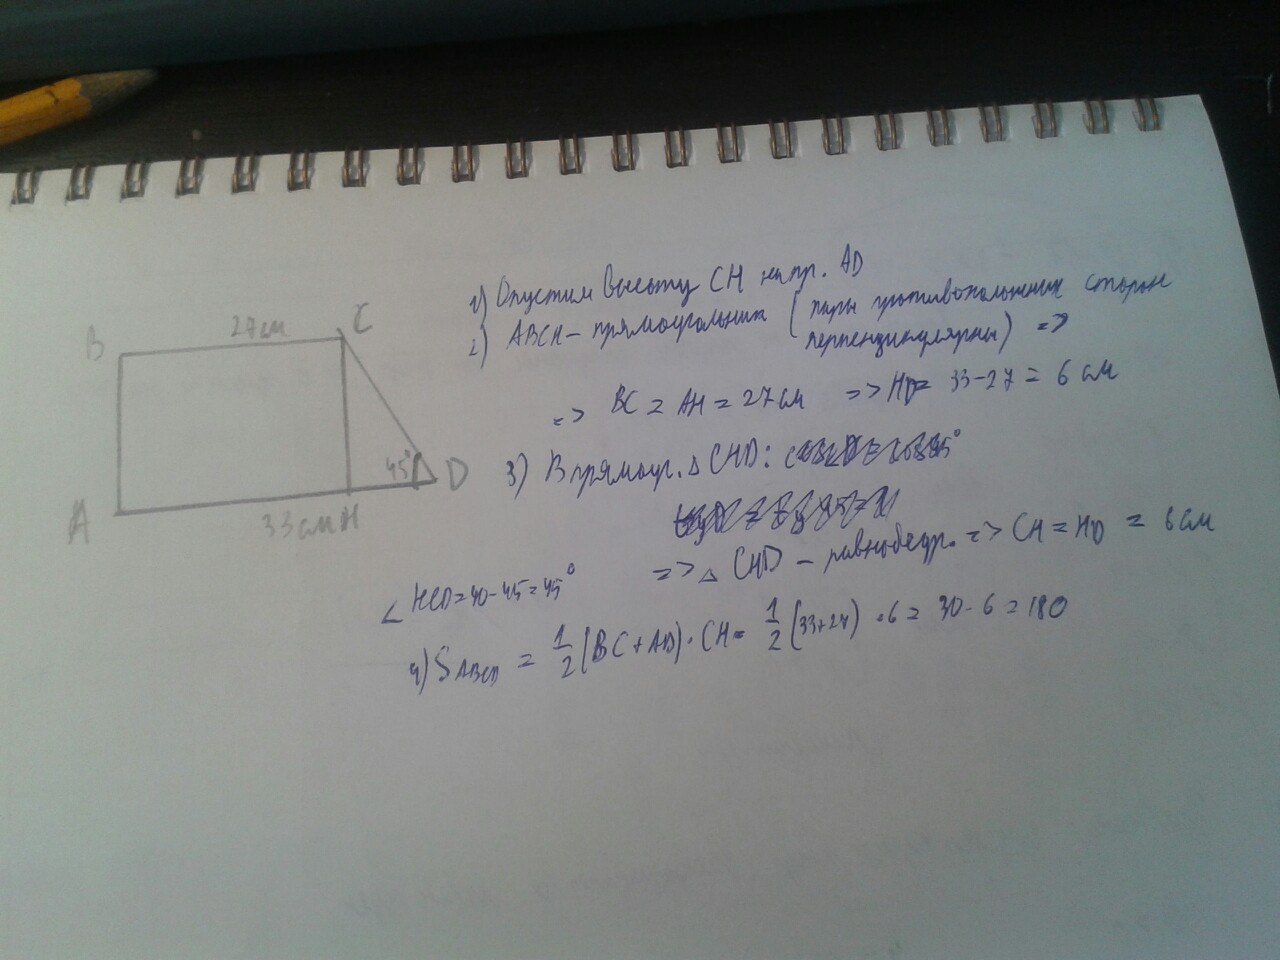 B
27см
C
45°
D
A
33см
H
1) Опустим высоту CH на пр. AD
2) ABCH – прямоугольник (пары противоположных сторон
перпендикулярны) =>
=> BC = AH = 27см => HD = 33-27 = 6 см
3) В прямоуг. △ CHD:
∠ HCD = 90-45=45° => △ CHD – равнобедр. => CH = HD = 6 см
4) S ABCD = 1/2 (BC + AD) · CH = 1/2 (33+27) · 6 = 30 · 6 = 180